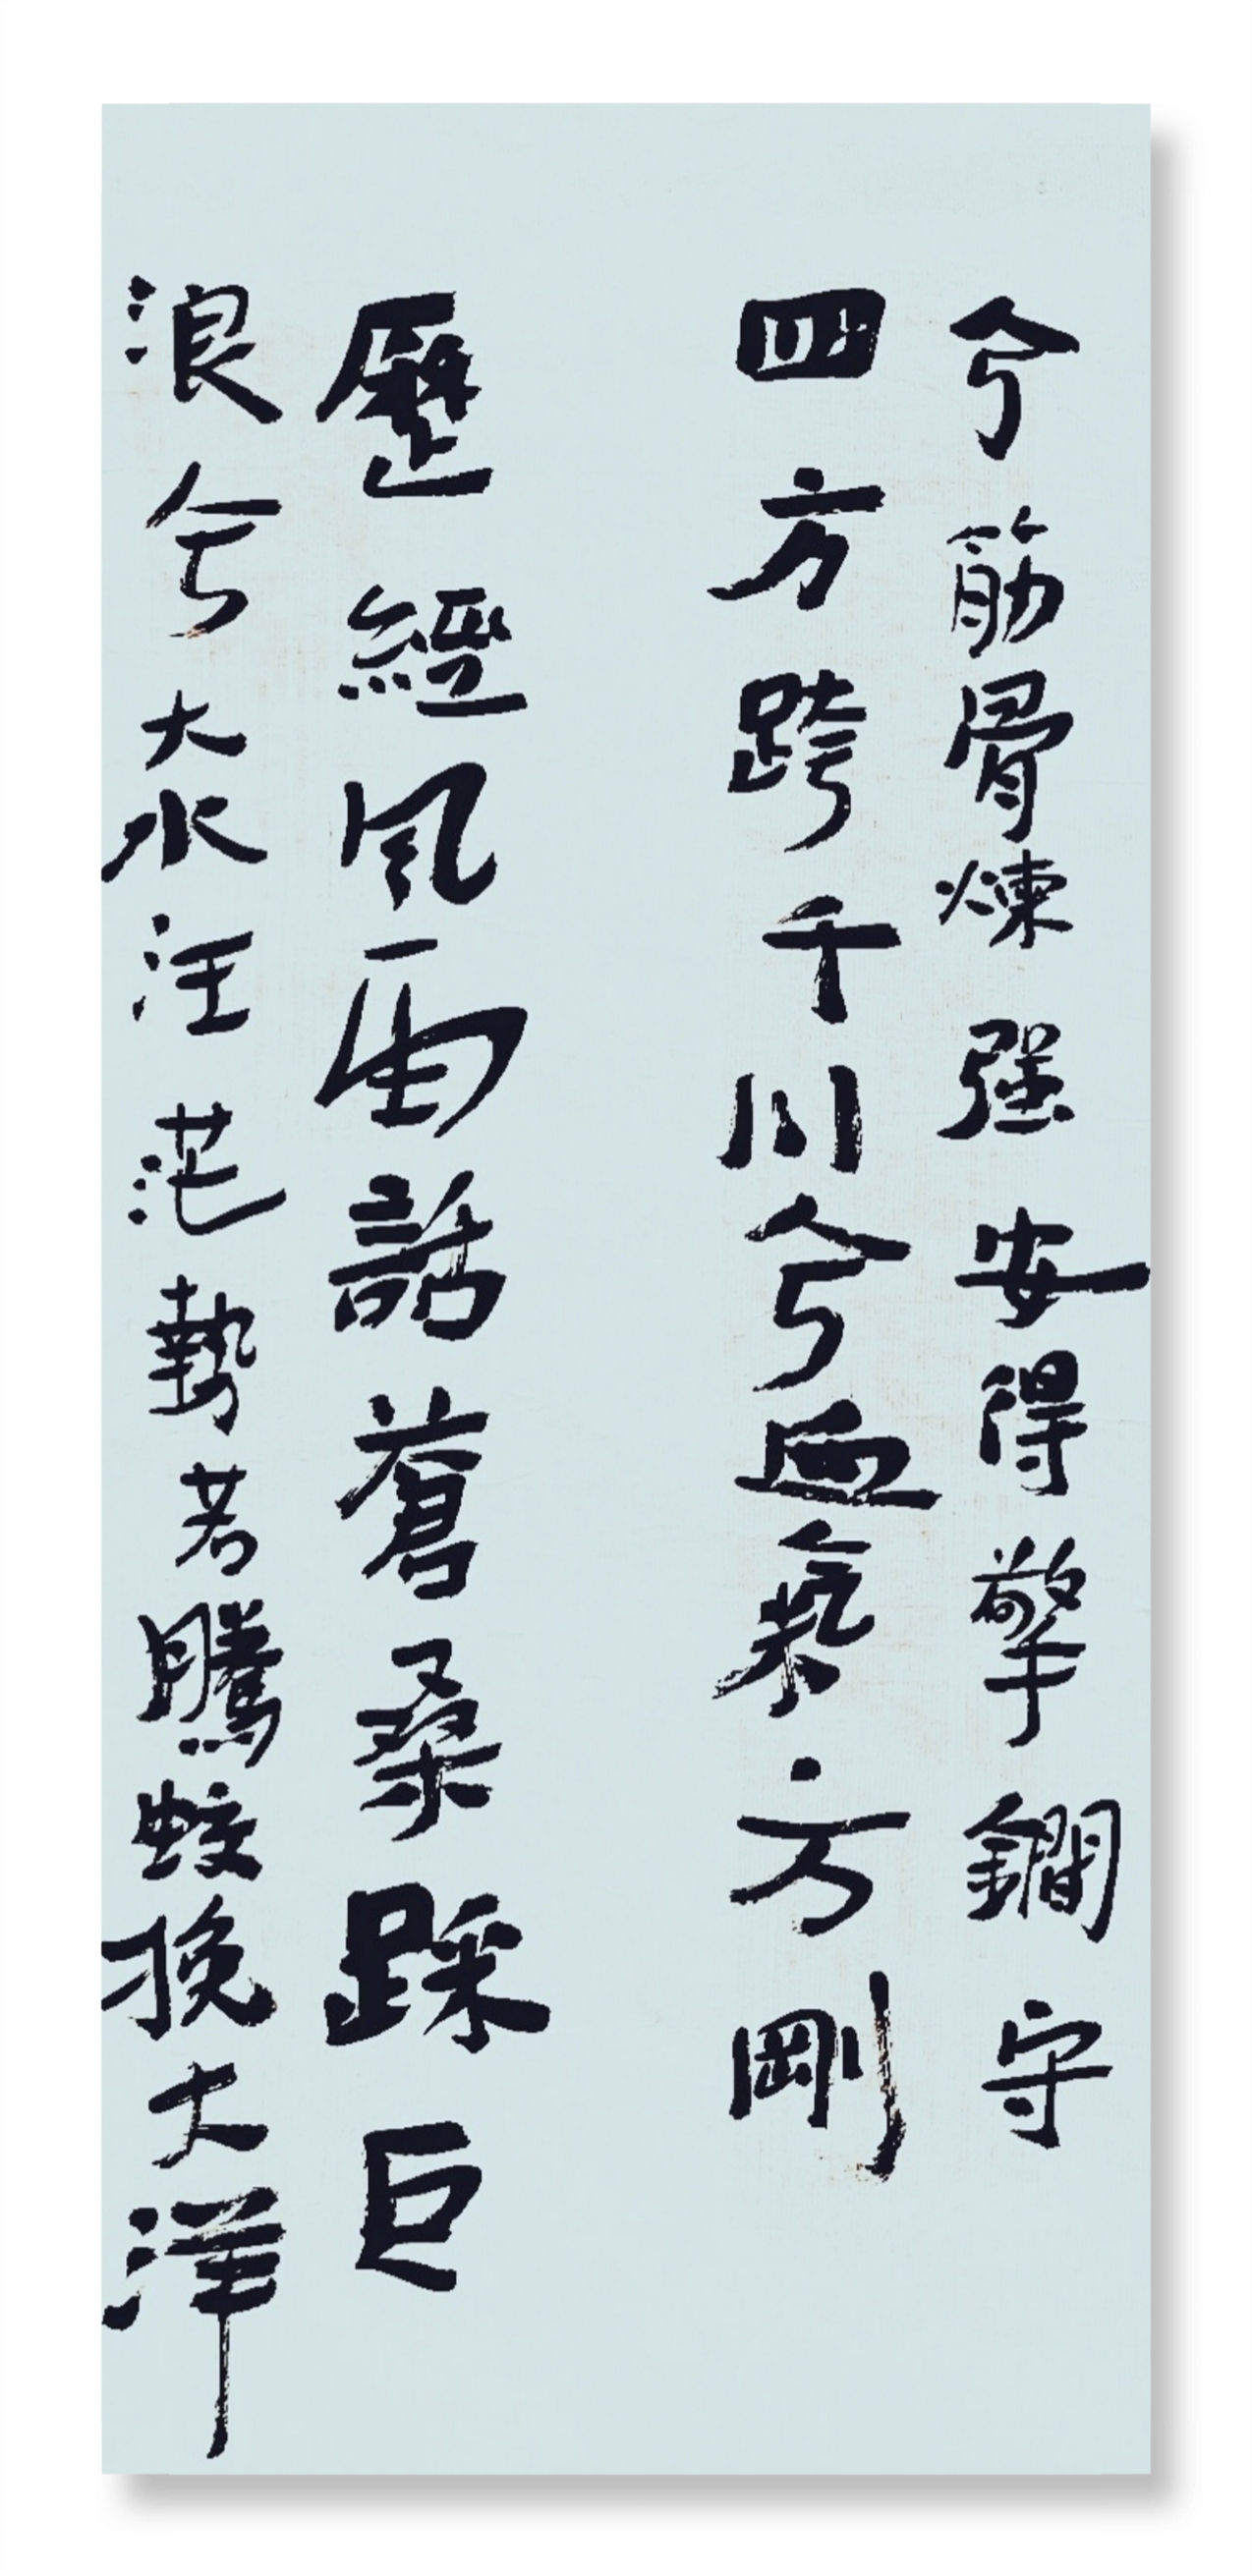 兮筋骨煉强安得擎鐧守
四方跨千川兮血氣方剛
歷經風雨話蒼桑踩巨
浪兮大水汪茫勢若騰蛟挽大洋